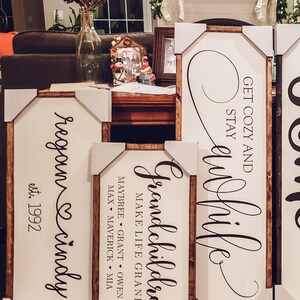 regan cindy
est. 1992
Grandchildren
MAKE LIFE GRAND
MAYBREE • GRANT • OWEN
MAX • MAVERICK • MIA
GET COZY AND
STAY
awhile